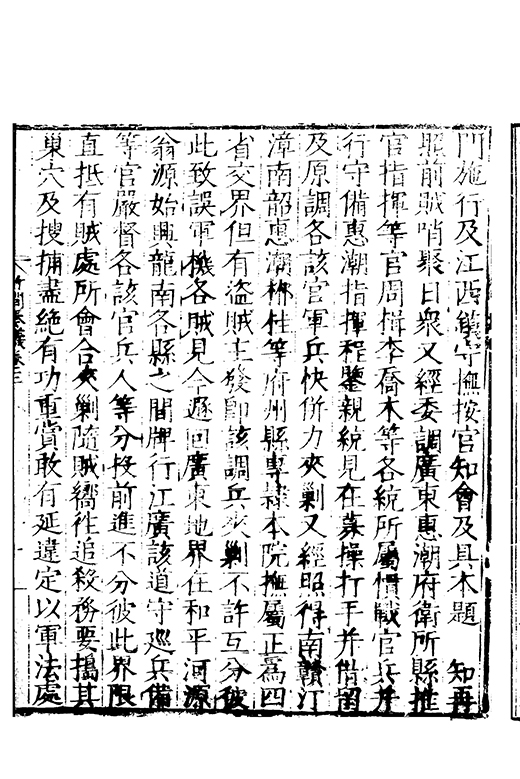 門施行及江西鎮守撫按官知會及具本題 知再
照前賊哨聚日衆又經委調廣東惠潮府衛所縣推
官指揮等官周楫李喬木等各統所屬慣戰官兵并
行守備惠潮指揮程鑒親統見在募操打手并借留
及原調各該官軍兵快併力夾剿又經照得南贛汀
漳南韶惠潮郴桂等府州縣專隸本院撫屬正爲四
省交界但有盜賊生發卽該調兵夾剿不許互分彼
此致誤軍機各賊見今遯回廣東地界住和平河源
翁源始興龍南各縣之間牌行江廣該道守廵兵備
等官嚴督各該官兵人等分投前進不分彼此界限
直抵有賊處所會合夾剿隨賊嚮徃追殺務要搗其
巢穴及搜捕盡絶有功重賞敢有延違定以軍法處
卷三